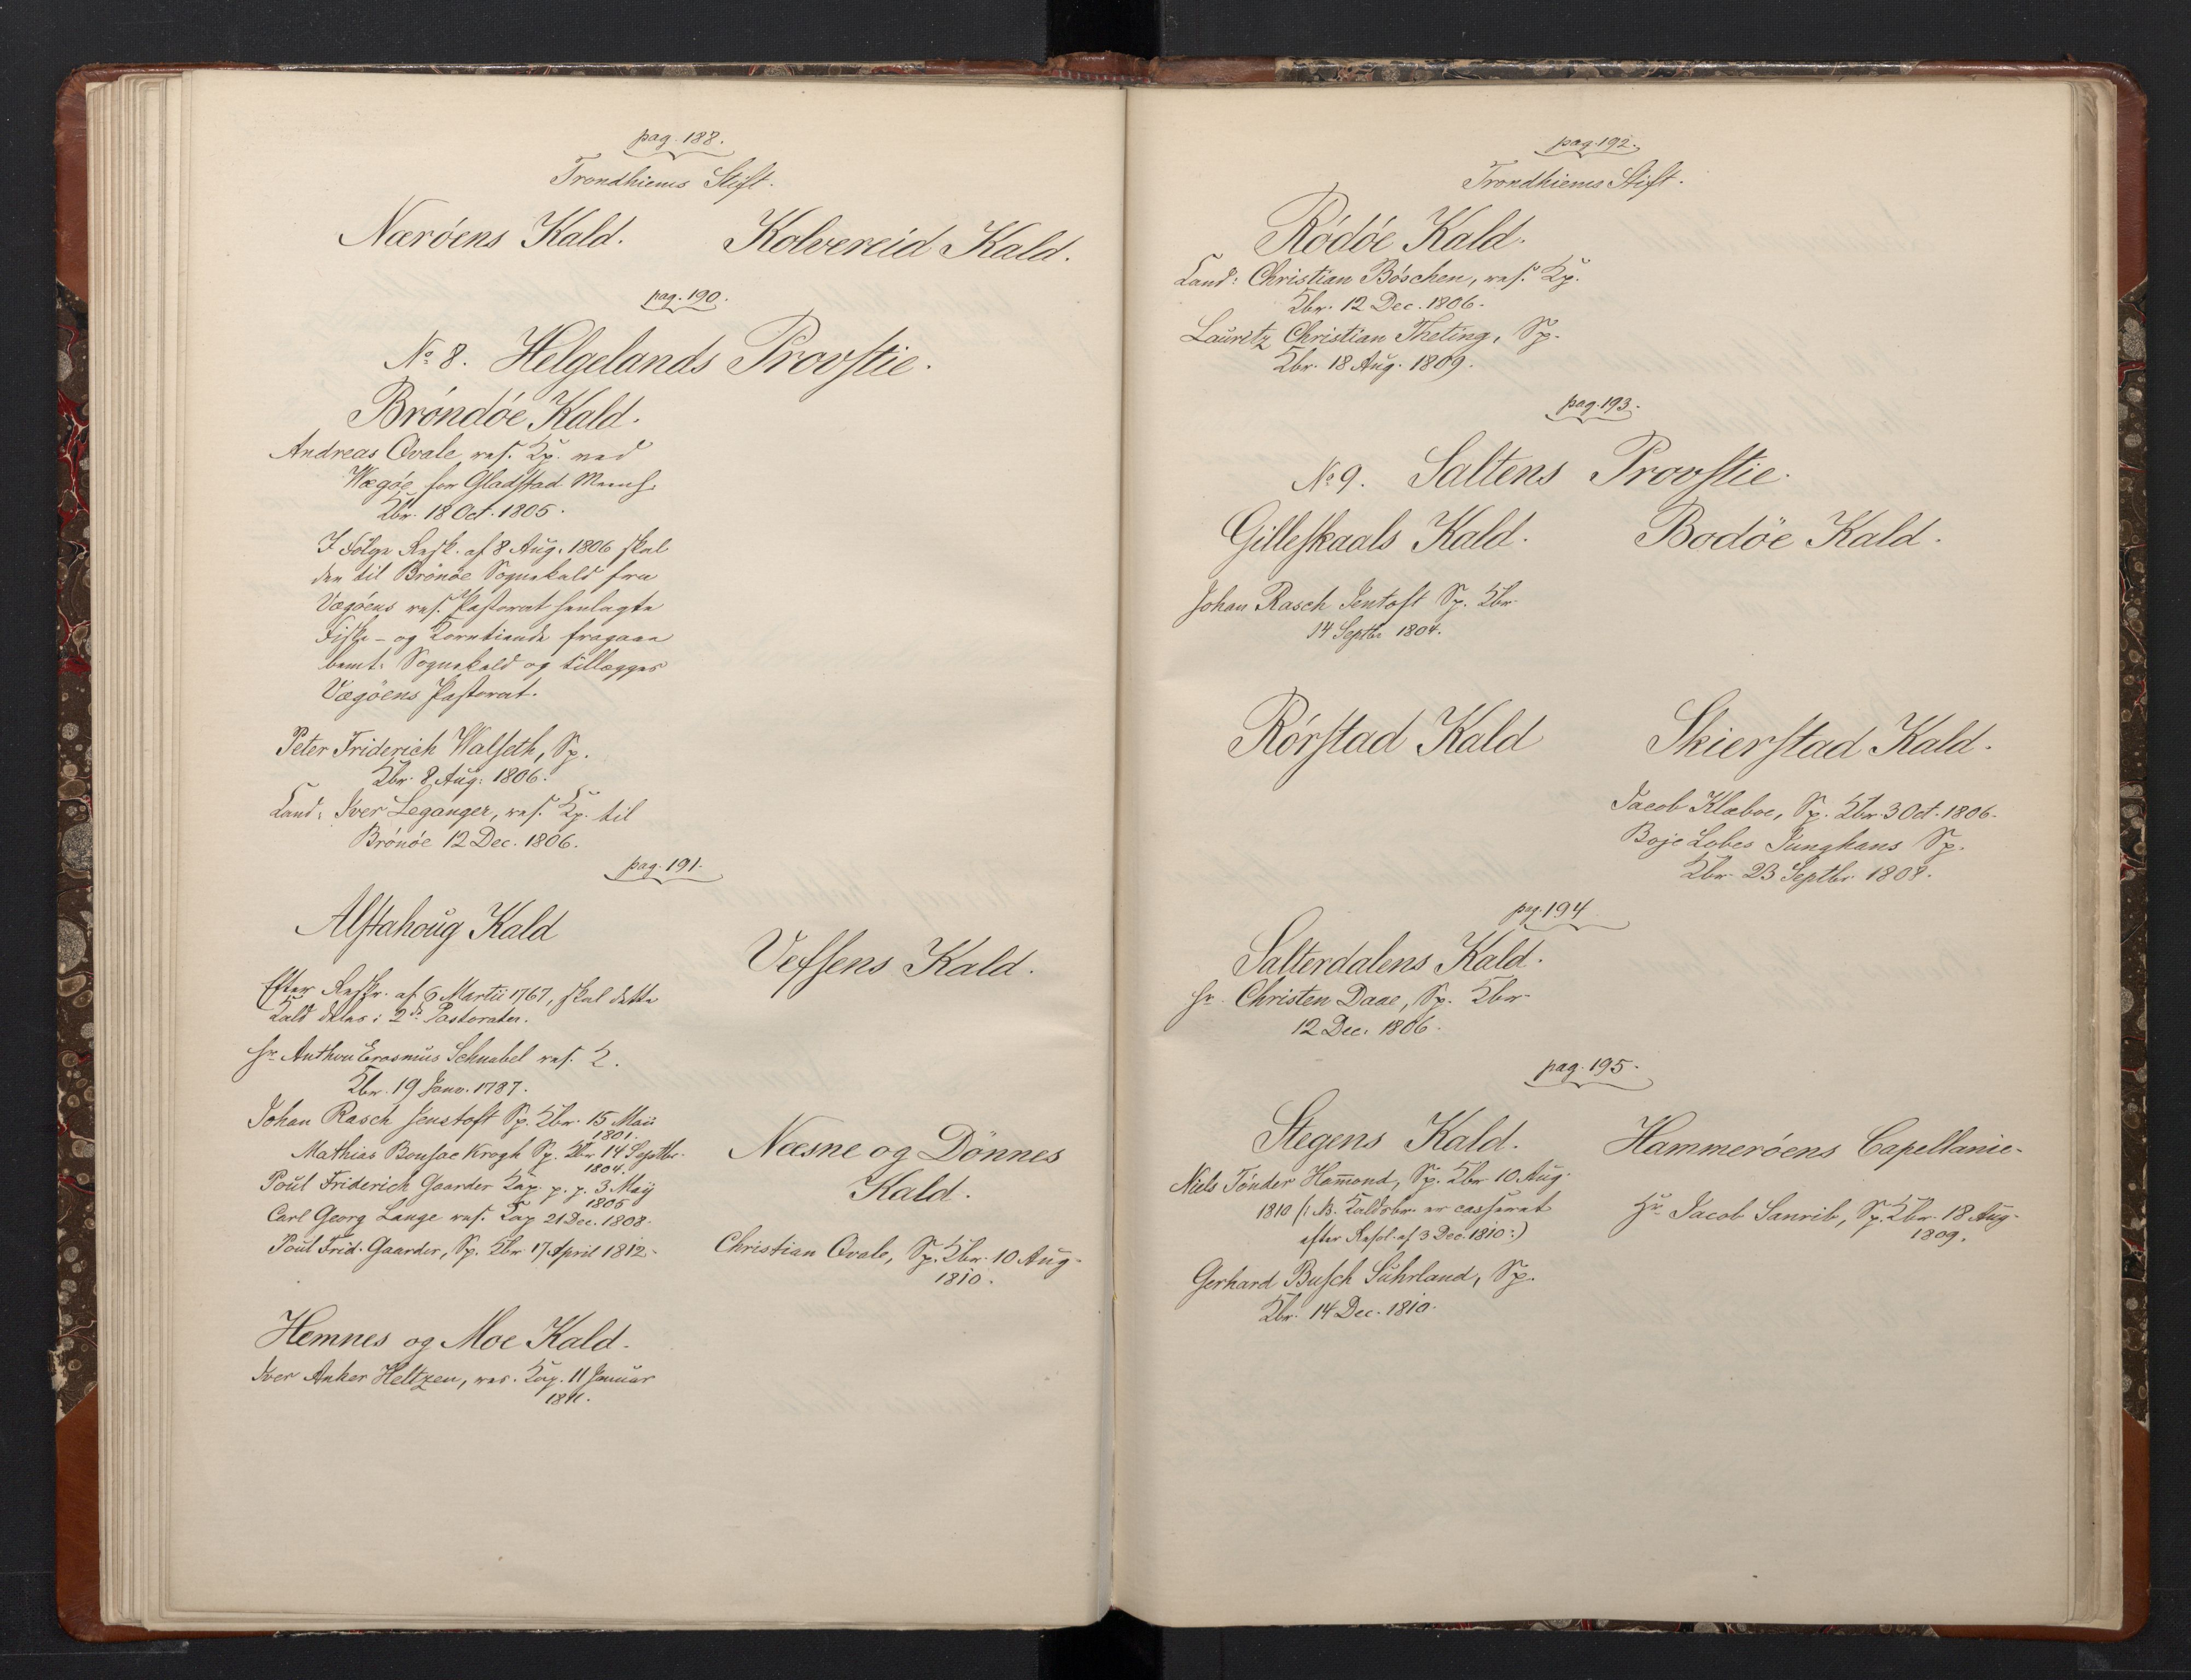 pag. 188.
Trondhiems Stift.
Nærøens Kald.
Kolvereid Kald.
pag. 190.
No 8. Helgelands Provstie.
Brøndøe Kald.
Andreas Qvale res. Kp. ved
Wægøe for Gladstad Menih.
Kbr. 18 Oct. 1805.
I Følge Resk. af 8 Aug. 1806 skal
den til Brønøe Sognekald fra
Vægøens res. Pastorat henlagte
Fiske- og Korntiende fragaae
bemt. Sognekald og tillægges
Vægøens Pastorat.
Peter Friderich Walseth, Sp.
Kbr. 8 Aug. 1806.
Cand: Iver Leganger, res. Kp. til
Brønøe 12 Dec. 1806.
pag. 191.
Alstahoug Kald
Efter Reskr. af 6 Martii 1767, skal dette
Kald deles i 2de Pastorater.
Hr. Anthon Erasmus Schnabel res. K.
Kbr. 19 Janv. 1787.
Johan Rasch Jenstoft Sp. Kbr. 15 Maii
1801.
Mathias Bonsac Krogh Sp. Kbr 14 Septbr.
1804.
Poul Friderich Gaarder Kap. p. p. 3 Maij
1805
Carl Georg Lange res. Kap 21 Dec. 1808.
Poul Frid. Gaarder, Sp. Kbr 17 April 1812.
Hemnes og Moe Kald.
Iver Anker Heltzen, res. Kap. 11 Januar
1811.
Vefsens Kald.
Næsne og Dönnes
Kald.
Christian Qvale, Sp. Kbr. 10 Aug.
1810.
pag. 192.
Trondhiems Stift.
Rødøe Kald.
Cand: Christian Bøschen, res. Kp.
Kbr. 12 Dec. 1806.
Lauritz Christian Theting, Sp.
Kbr. 18 Aug. 1809.
pag. 193.
No 9. Saltens Provstie.
Gilleskaals Kald.
Bodöe Kald.
Johan Rasch Jentoft Sp. Kbr.
14 Septbr 1804.
Rørstad Kald
Skierstad Kald.
Jacob Klæboe, Sp. Kbr. 3 Oct. 1806.
Boje Lobes Junghans Sp.
Kbr. 23 Septbr. 1808.
pag. 194
Salterdalens Kald.
Hr. Christen Daae, Sp. Kbr.
12 Dec. 1806.
pag. 195.
Stegens Kald.
Niels Tønder Ham̅ond, Sp. Kbr 10 Aug.
1810 /: NB. Kaldsbr. er casseret
efter Resol. af 3 Dec. 1810 :)
Gerhard Busch Suhrland, Sp.
Kbr. 14 Dec. 1810.
Hammerøens Capellanie.
Hr. Jacob Sanrib, Sp. Kbr. 18 Aug.
1809.